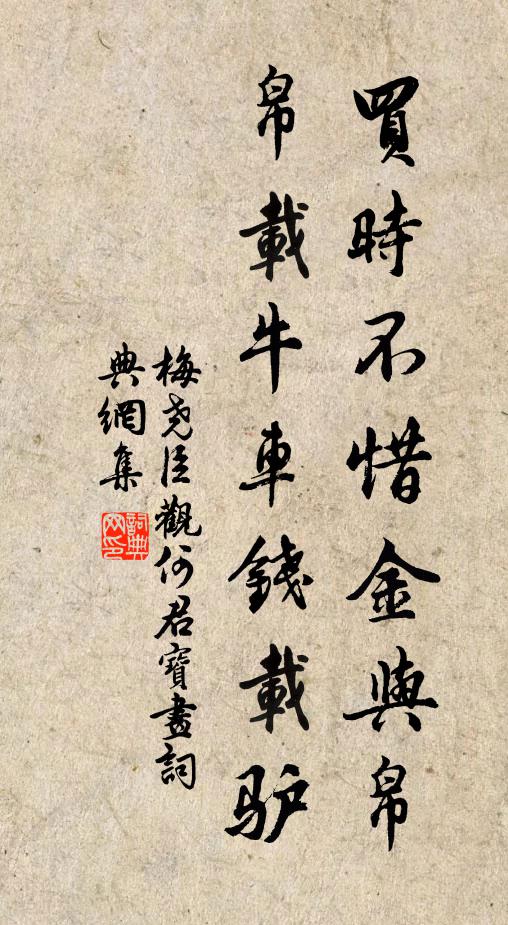 買時不惜金與帛
帛載牛車錢載驴
梅尧臣觀何君寶畫詞
典網集
詞典
网印